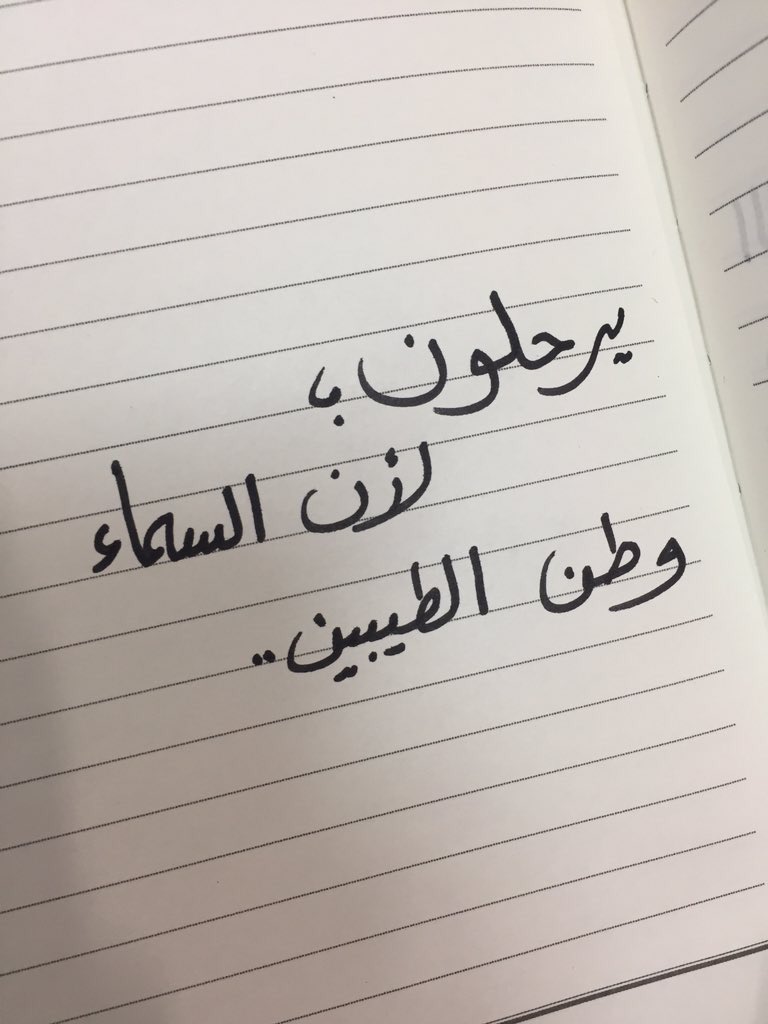 يرحلون؛
لأن السماء
وطن الطيبين..